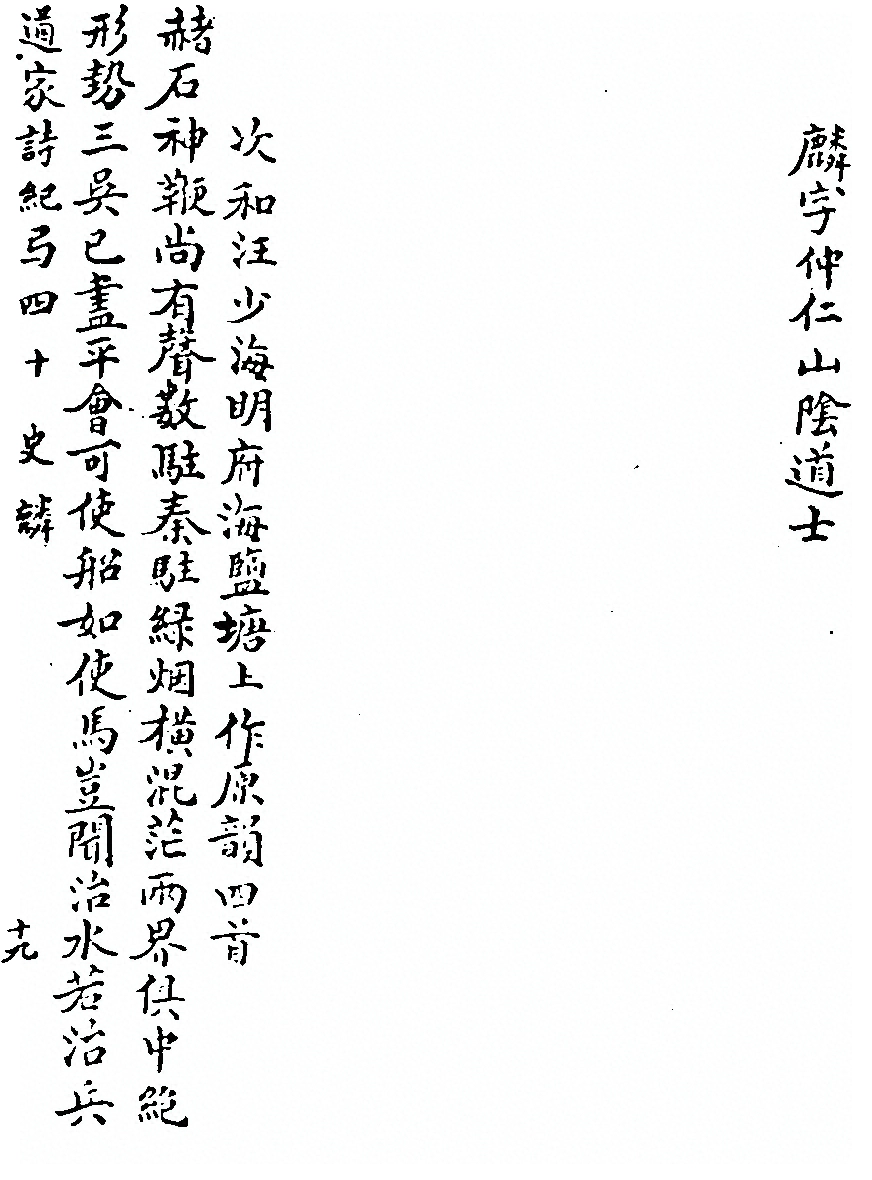 麟字仲仁山陰道士
次和汪少海明府海鹽塘上作原韻四首
赭石神鞭尚有聲數駐秦駐綠烟橫混茫兩界俱中絕
形勢三吳已盡平會可使船如使馬豈聞治水若治兵
道家詩紀弓四十 史麟 十九